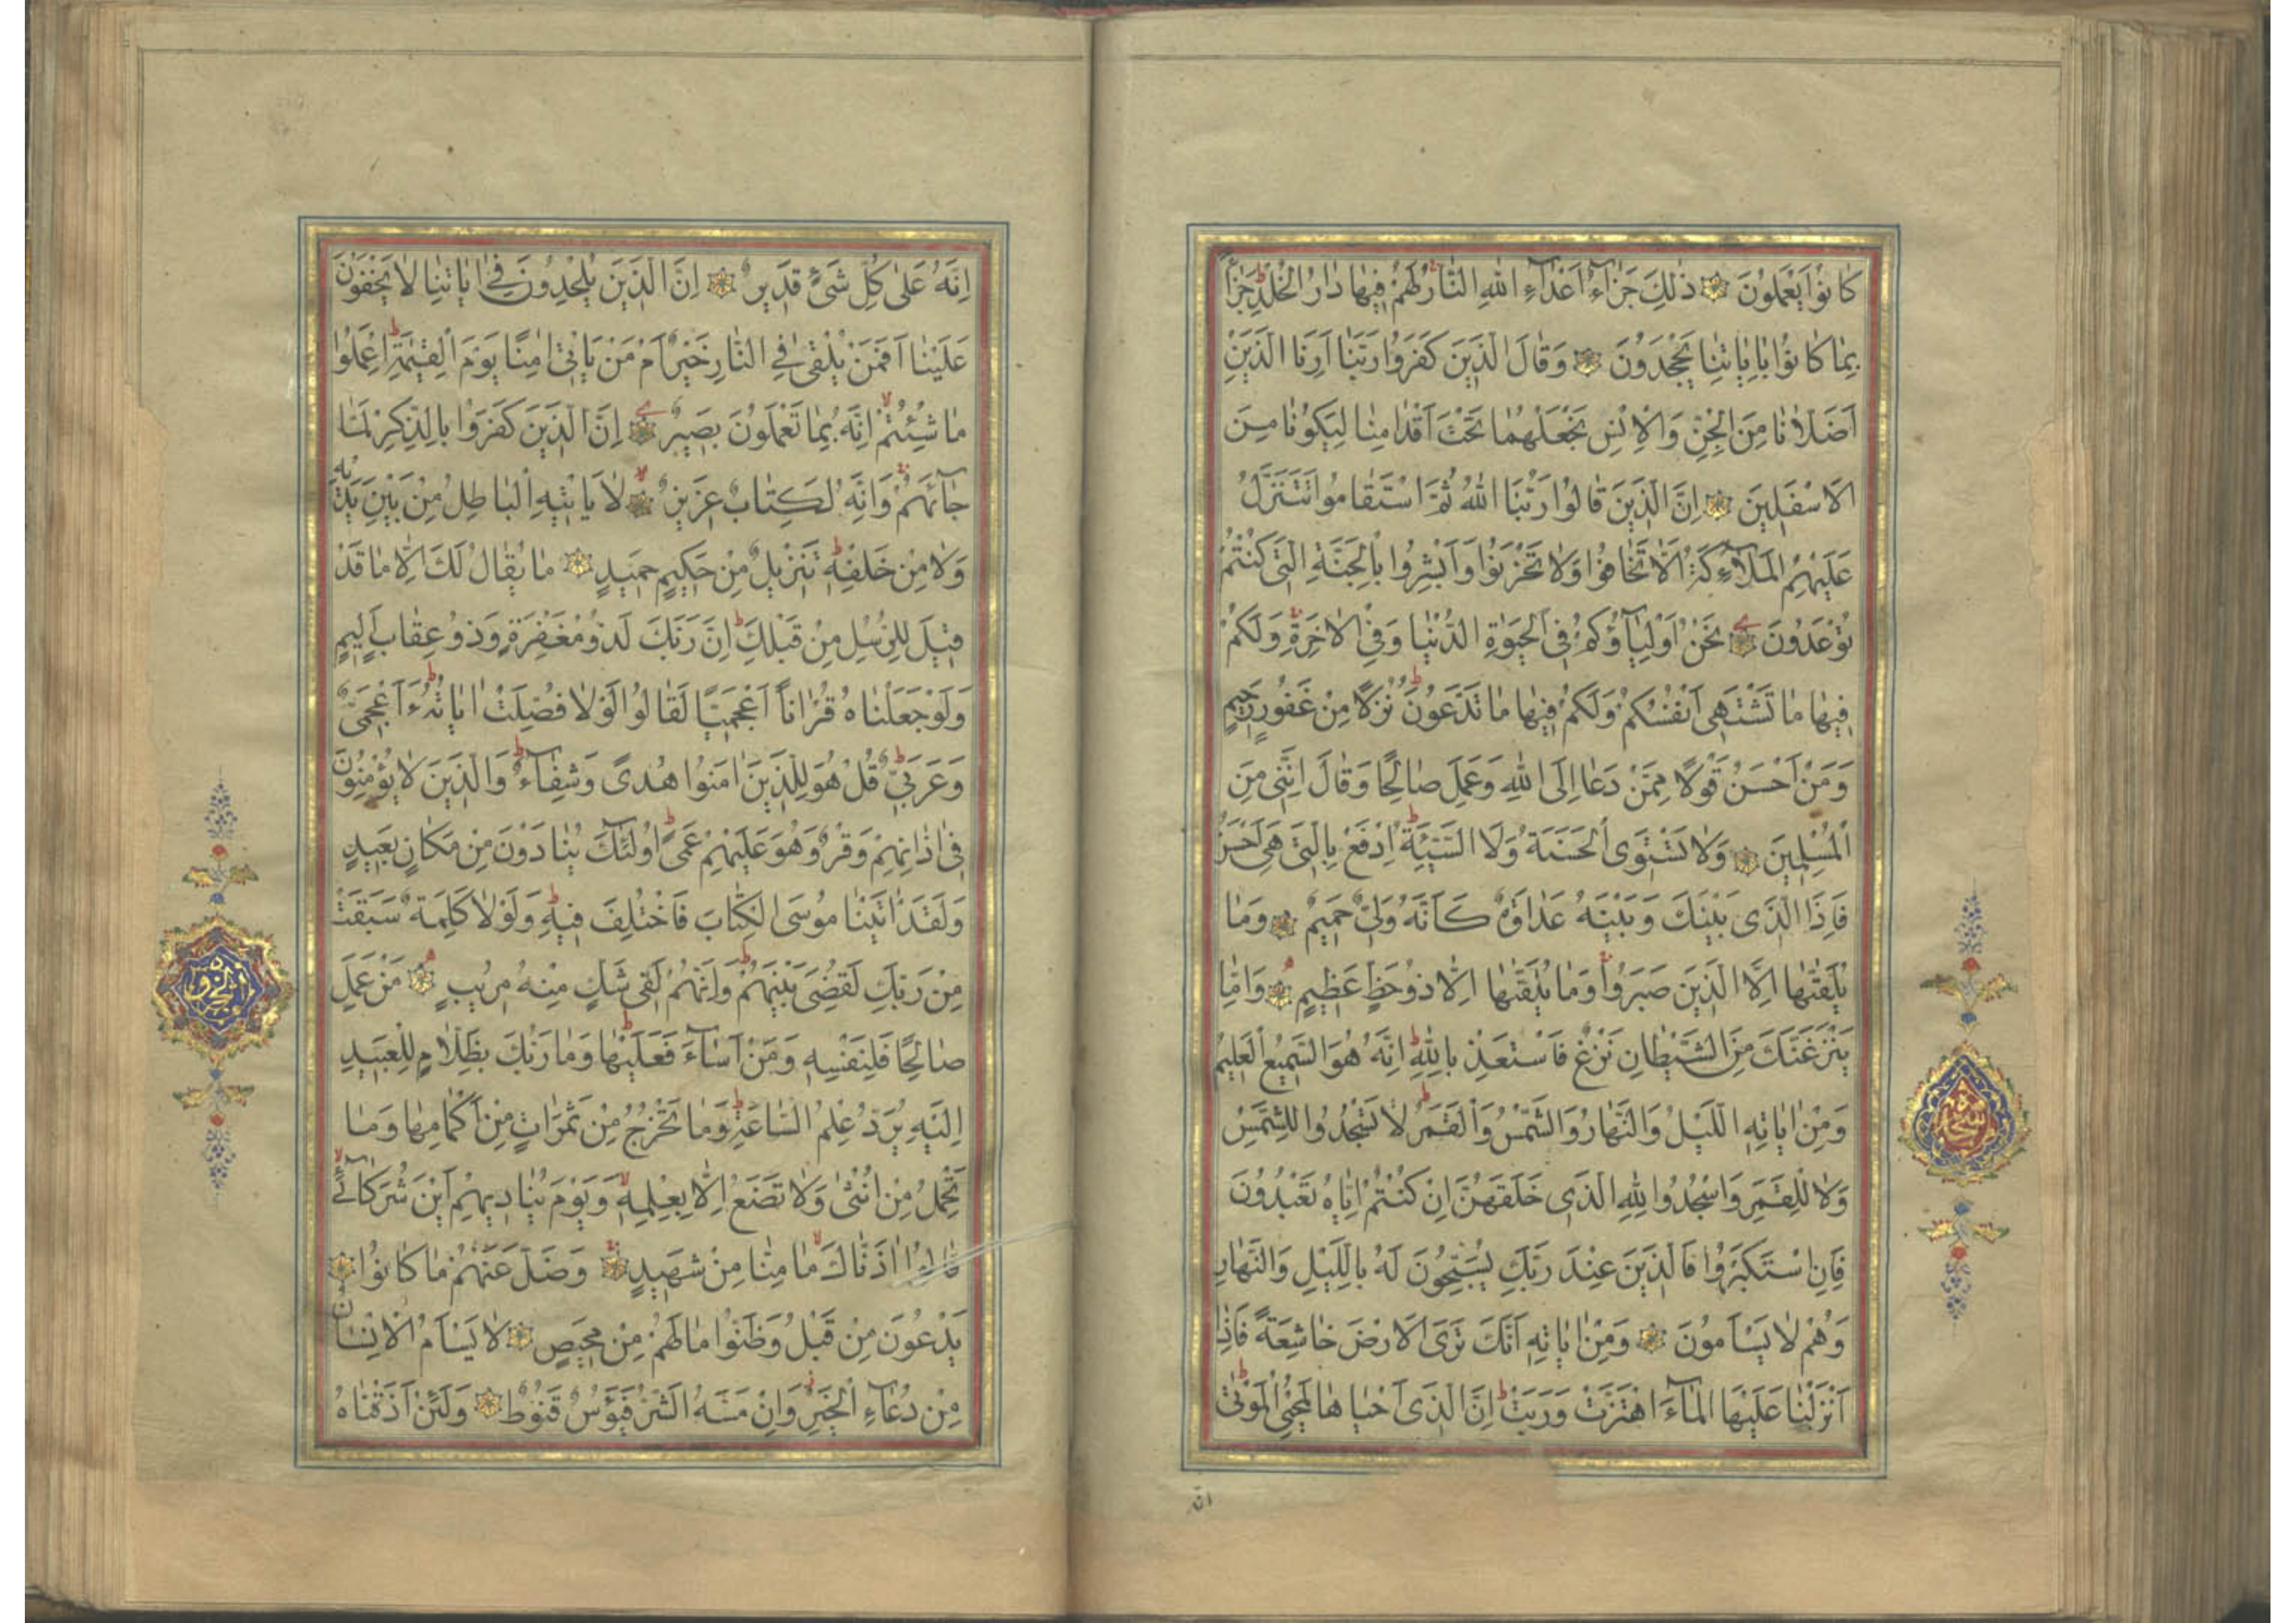 كَانُوا يَعْمَلُونَ ذٰلِكَ جَزَآءُ اَعْدَآءِ اللهِ النَّارُ لَهُمْ فِيهَا دَارُ الْخُلْدِ جَزَآءً
بِمَا كَانُوا بِاٰيَاتِنَا يَجْحَدُونَ وَقَالَ الَّذِينَ كَفَرُوا رَبَّنَا اَرِنَا الَّذَيْنِ
اَضَلَّانَا مِنَ الْجِنِّ وَالْاِنْسِ نَجْعَلْهُمَا تَحْتَ اَقْدَامِنَا لِيَكُونَا مِنَ
الْاَسْفَلِينَ اِنَّ الَّذِينَ قَالُوا رَبُّنَا اللهُ ثُمَّ اسْتَقَامُوا تَتَنَزَّلُ
عَلَيْهِمُ الْمَلٰٓئِكَةُ اَلَّا تَخَافُوا وَلَا تَحْزَنُوا وَاَبْشِرُوا بِالْجَنَّةِ الَّتِي كُنْتُمْ
تُوعَدُونَ نَحْنُ اَوْلِيَآؤُكُمْ فِي الْحَيٰوةِ الدُّنْيَا وَفِي الْاٰخِرَةِ وَلَكُمْ
فِيهَا مَا تَشْتَهِي اَنْفُسُكُمْ وَلَكُمْ فِيهَا مَا تَدَّعُونَ نُزُلًا مِنْ غَفُورٍ رَحِيمٍ
وَمَنْ اَحْسَنُ قَوْلًا مِمَّنْ دَعَا اِلَى اللهِ وَعَمِلَ صَالِحًا وَقَالَ اِنَّنِي مِنَ
الْمُسْلِمِينَ وَلَا تَسْتَوِي الْحَسَنَةُ وَلَا السَّيِّئَةُ اِدْفَعْ بِالَّتِي هِيَ اَحْسَنُ
فَاِذَا الَّذِي بَيْنَكَ وَبَيْنَهُ عَدَاوَةٌ كَاَنَّهُ وَلِيٌّ حَمِيمٌ وَمَا
يُلَقّٰيهَا اِلَّا الَّذِينَ صَبَرُوا وَمَا يُلَقّٰيهَا اِلَّا ذُو حَظٍّ عَظِيمٍ وَاِمَّا
يَنْزَغَنَّكَ مِنَ الشَّيْطَانِ نَزْغٌ فَاسْتَعِذْ بِاللهِ اِنَّهُ هُوَ السَّمِيعُ الْعَلِيمُ
وَمِنْ اٰيَاتِهِ اللَّيْلُ وَالنَّهَارُ وَالشَّمْسُ وَالْقَمَرُ لَا تَسْجُدُوا لِلشَّمْسِ
وَلَا لِلْقَمَرِ وَاسْجُدُوا لِلهِ الَّذِي خَلَقَهُنَّ اِنْ كُنْتُمْ اِيَّاهُ تَعْبُدُونَ
فَاِنِ اسْتَكْبَرُوا فَالَّذِينَ عِنْدَ رَبِّكَ يُسَبِّحُونَ لَهُ بِاللَّيْلِ وَالنَّهَارِ
وَهُمْ لَا يَسْاَمُونَ وَمِنْ اٰيَاتِهِ اَنَّكَ تَرَى الْاَرْضَ خَاشِعَةً فَاِذَا
اَنْزَلْنَا عَلَيْهَا الْمَآءَ اهْتَزَّتْ وَرَبَتْ اِنَّ الَّذِي اَحْيَاهَا لَمُحْيِي الْمَوْتٰى
انّه
اِنَّهُ عَلٰى كُلِّ شَيْءٍ قَدِيرٌ اِنَّ الَّذِينَ يُلْحِدُونَ فِي اٰيَاتِنَا لَا يَخْفَوْنَ
عَلَيْنَا اَفَمَنْ يُلْقٰى فِي النَّارِ خَيْرٌ اَمْ مَنْ يَاْتِي اٰمِنًا يَوْمَ الْقِيٰمَةِ اِعْمَلُوا
مَا شِئْتُمْ اِنَّهُ بِمَا تَعْمَلُونَ بَصِيرٌ اِنَّ الَّذِينَ كَفَرُوا بِالذِّكْرِ لَمَّا
جَآئَهُمْ وَاِنَّهُ لَكِتَابٌ عَزِيزٌ لَا يَاْتِيهِ الْبَاطِلُ مِنْ بَيْنِ يَدَيْهِ
وَلَا مِنْ خَلْفِهِ تَنْزِيلٌ مِنْ حَكِيمٍ حَمِيدٍ مَا يُقَالُ لَكَ اِلَّا مَا قَدْ
قِيلَ لِلرُّسُلِ مِنْ قَبْلِكَ اِنَّ رَبَّكَ لَذُو مَغْفِرَةٍ وَذُو عِقَابٍ اَلِيمٍ
وَلَوْ جَعَلْنَاهُ قُرْاٰنًا اَعْجَمِيًّا لَقَالُوا لَوْلَا فُصِّلَتْ اٰيَاتُهُ ءَاَعْجَمِيٌّ
وَعَرَبِيٌّ قُلْ هُوَ لِلَّذِينَ اٰمَنُوا هُدًى وَشِفَآءٌ وَالَّذِينَ لَا يُؤْمِنُونَ
فِي اٰذَانِهِمْ وَقْرٌ وَهُوَ عَلَيْهِمْ عَمًى اُولٰٓئِكَ يُنَادَوْنَ مِنْ مَكَانٍ بَعِيدٍ
وَلَقَدْ اٰتَيْنَا مُوسَى الْكِتَابَ فَاخْتُلِفَ فِيهِ وَلَوْلَا كَلِمَةٌ سَبَقَتْ
مِنْ رَبِّكَ لَقُضِيَ بَيْنَهُمْ وَاِنَّهُمْ لَفِي شَكٍّ مِنْهُ مُرِيبٍ مَنْ عَمِلَ
صَالِحًا فَلِنَفْسِهِ وَمَنْ اَسَآءَ فَعَلَيْهَا وَمَا رَبُّكَ بِظَلَّامٍ لِلْعَبِيدِ
اِلَيْهِ يُرَدُّ عِلْمُ السَّاعَةِ وَمَا تَخْرُجُ مِنْ ثَمَرَاتٍ مِنْ اَكْمَامِهَا وَمَا
تَحْمِلُ مِنْ اُنْثٰى وَلَا تَضَعُ اِلَّا بِعِلْمِهِ وَيَوْمَ يُنَادِيهِمْ اَيْنَ شُرَكَآئِي
قَالُوا اٰذَنَّاكَ مَا مِنَّا مِنْ شَهِيدٍ وَضَلَّ عَنْهُمْ مَا كَانُوا
يَدْعُونَ مِنْ قَبْلُ وَظَنُّوا مَا لَهُمْ مِنْ مَحِيصٍ لَا يَسْاَمُ الْاِنْسَانُ
مِنْ دُعَآءِ الْخَيْرِ وَاِنْ مَسَّهُ الشَّرُّ فَيَؤُسٌ قَنُوطٌ وَلَئِنْ اَذَقْنَاهُ